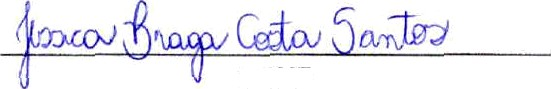 Jessica Braga Costa Santos